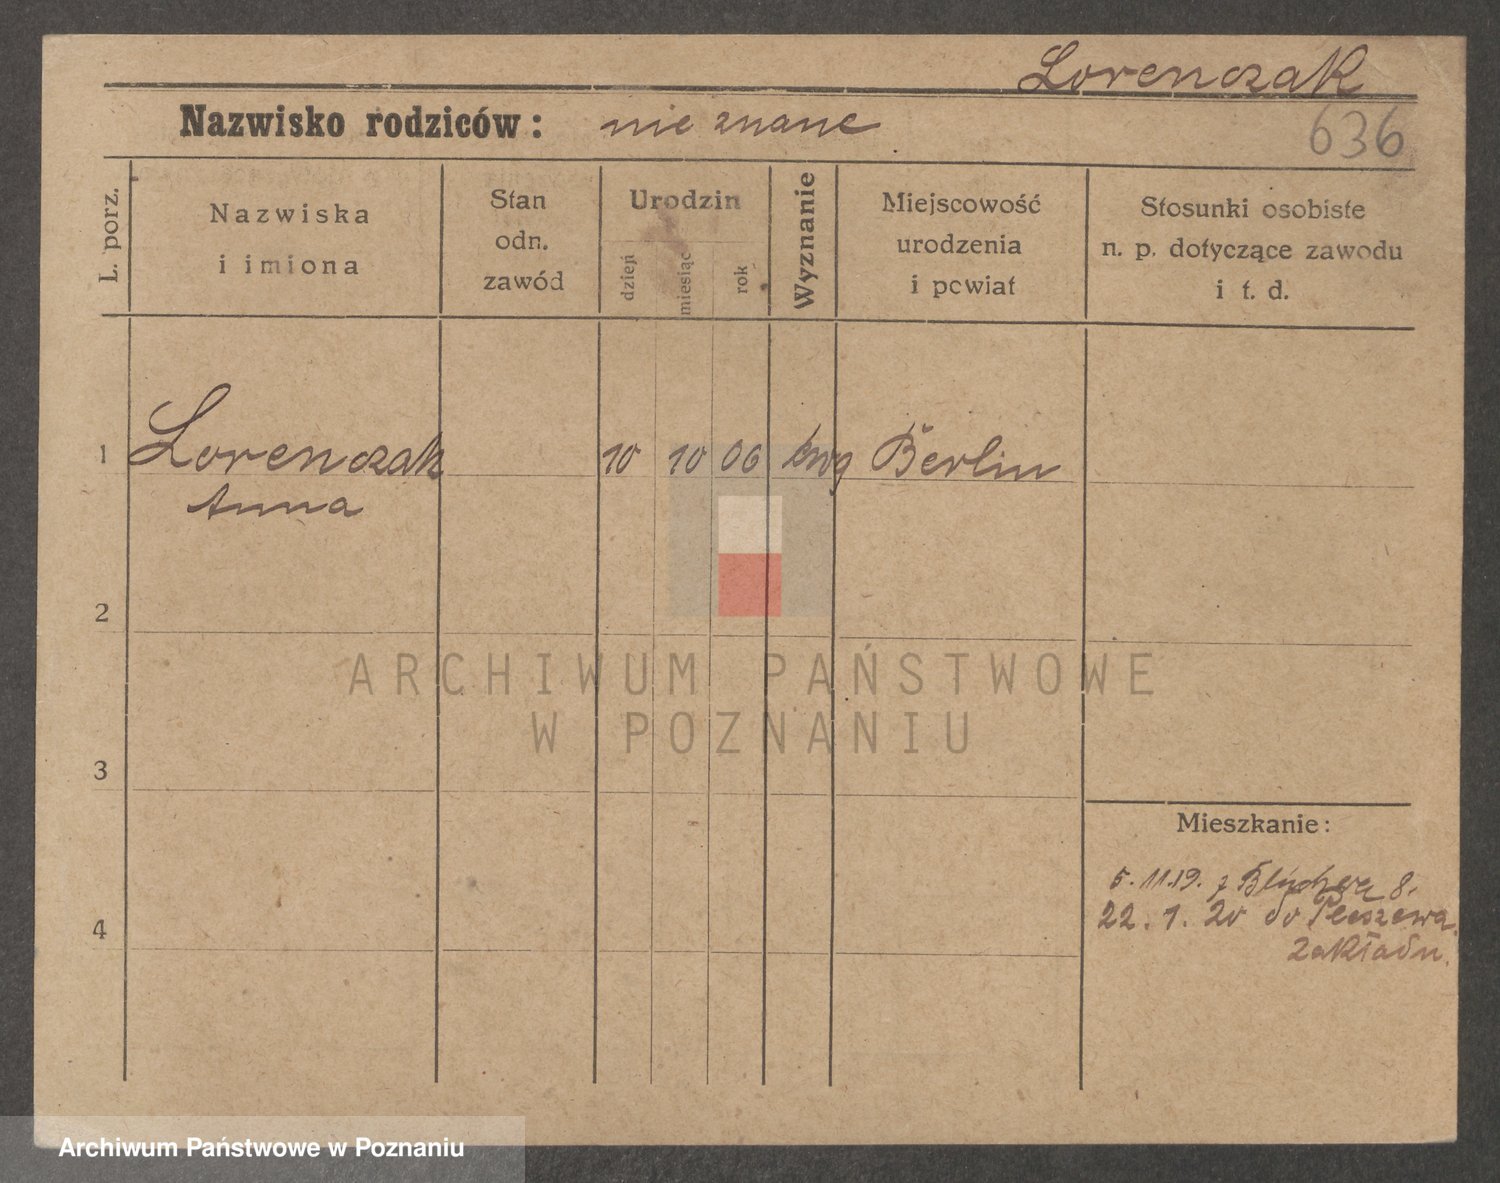 Lorenczak
Nazwisko rodziców: nie znane
636
L. porz.
Nazwiska
i imiona
Stan
odn.
zawód
Urodzin
dzień
miesiąc
rok
Wyznanie
Miejscowość
urodzenia
i powiat
Stosunki osobiste
n. p. dotyczące zawodu
i t. d.
1 Lorenczak 10 10 06 Berlin
Anna
2
3
4
Mieszkanie:
5. 11.19. z 8.
22. 1. 20 do Pleszewa.
zakładu.
ARCHIWUM PAŃSTWOWE
W POZNANIU
Archiwum Państwowe w Poznaniu